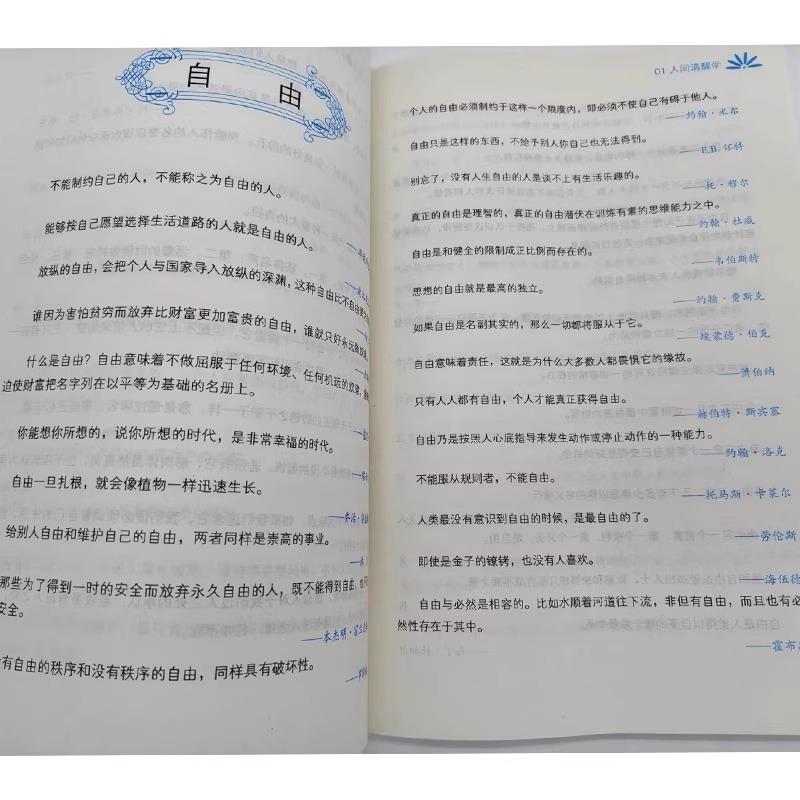 自由
不能制约自己的人，不能称之为自由的人。
能够按自己愿望选择生活道路的人就是自由的人。
放纵的自由，会把个人与国家导入放纵的深渊，这种自由比不自由
谁因为害怕贫穷而放弃比财富更加富贵的自由，谁就只好永远
什么是自由？自由意味着不做屈服于任何环境、任何机运的奴隶，
迫使财富把名字列在以平等为基础的名册上。
你能想你所想的，说你所想的时代，是非常幸福的时代。
自由一旦扎根，就会像植物一样迅速生长。
——乔治·
给别人自由和维护自己的自由，两者同样是崇高的事业。
那些为了得到一时的安全而放弃永久自由的人，既不能得到自由，也
安全。
——本杰明·富兰
有自由的秩序和没有秩序的自由，同样具有破坏性。
01 人间清醒学
个人的自由必须制约于这样一个限度内，即必须不使自己有碍于他人。
——约翰·米尔
自由只是这样的东西，不给予别人你自己也无法得到。
——E.B.怀特
别忘了，没有人生自由的人是谈不上有生活乐趣的。
——托·穆尔
真正的自由是理智的，真正的自由潜伏在训练有素的思维能力之中。
——约翰·杜威
自由是和健全的限制成正比例而存在的。
——韦伯斯特
思想的自由就是最高的独立。
——约翰·费斯克
如果自由是名副其实的，那么一切都将服从于它。
——埃蒙德·伯克
自由意味着责任，这就是为什么大多数人都畏惧它的缘故。
——萧伯纳
只有人人都有自由，个人才能真正获得自由。
——赫伯特·斯宾塞
自由乃是按照人心底指导来发生动作或停止动作的一种能力。
——约翰·洛克
不能服从规则者，不能自由。
——托马斯·卡莱尔
人类最没有意识到自由的时候，是最自由的了。
——劳伦斯
即使是金子的镣铐，也没有人喜欢。
——海伍德
自由与必然是相容的。比如水顺着河道往下流，非但有自由，而且也有必
然性存在于其中。
——霍布